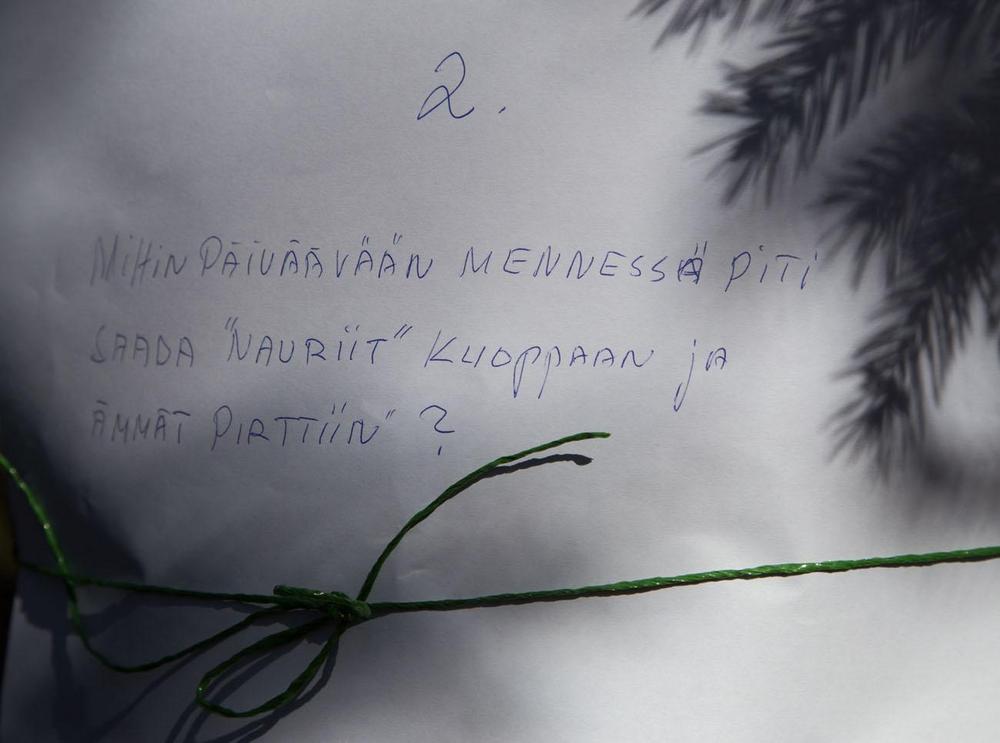 2.
MiHiN PÄiVÄÄVÄÄN MENNESSÄ PiTi
SAADA "NAURiiT" KUOPPAAN jA
ÄMMÄT PiRTTiiN" ?